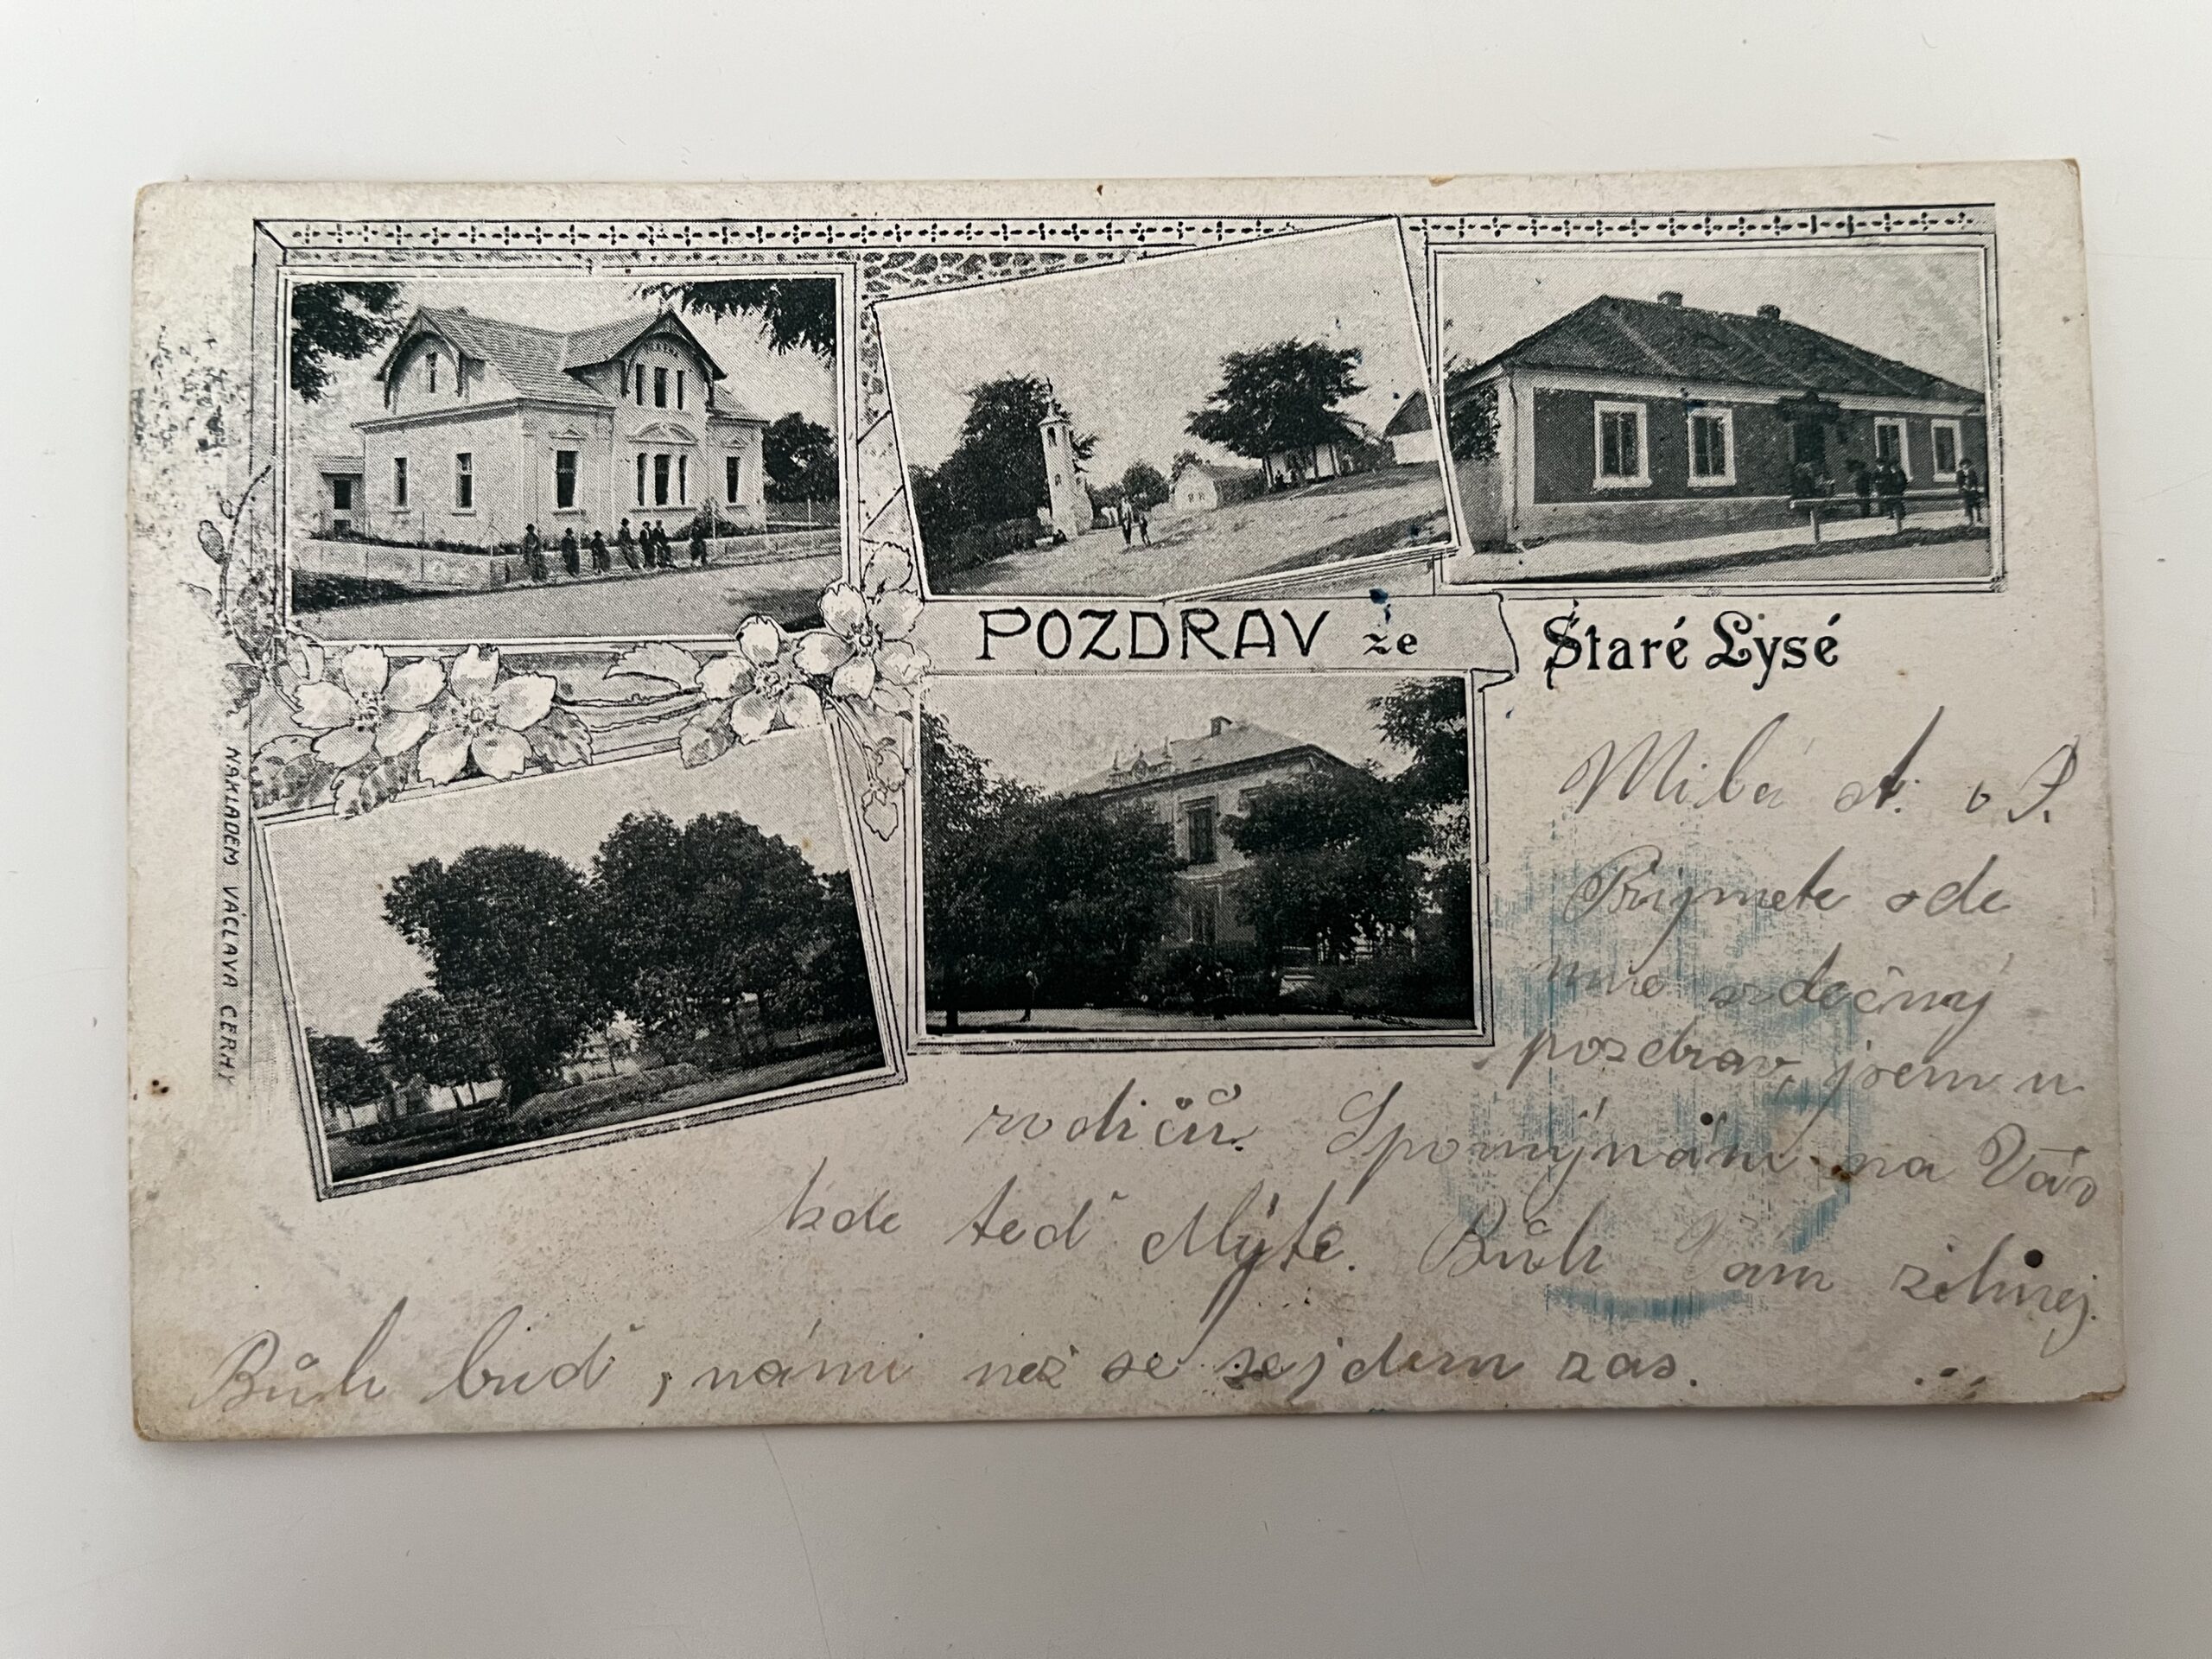 POZDRAV ze Staré Lysé
NAKLADEM VÁCLAVA CERHY
Milá st. v P.
Přijmete ode
mne srdečný
pozdrav, jsem u
rodičů. Spomýnám na Vás
kde teď Mýte. Bůh Vám
Bůh buď s námi než se sejdem zas.